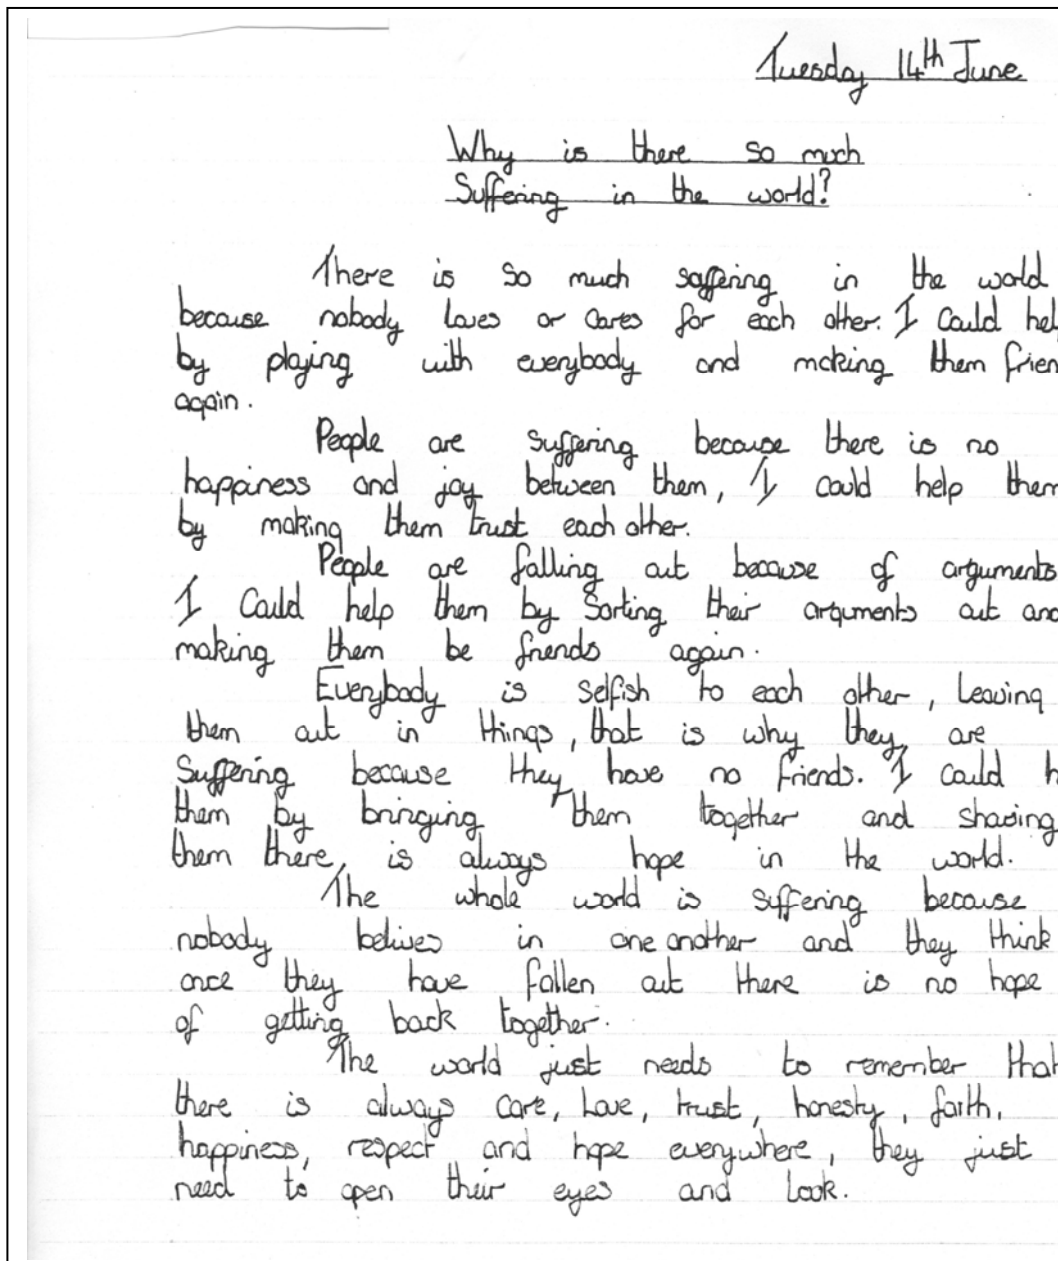 Tuesday 14th June
Why is there so much
Suffering in the world?
There is so much saffering in the world
because nobody loves or cares for each other. I could hel
by playing with everybody and making them frien
again.
People are suffering because there is no
happiness and joy between them, I could help them
by making them trust each other.
People are falling out because of arguments
I could help them by sorting their arguments out and
making them be friends again.
Everybody is selfish to each other, leaving
them out in things, that is why they are
suffering because they have no friends. I could h
them by bringing them together and showing
them there, is always hope in the world.
The whole world is suffering because
nobody belives in one another and they think
once they have fallen out there is no hope
of getting back together.
The world just needs to remember that
there is always care, love, trust, honesty, faith,
happiness, respect and hope everywhere, they just
need to open their eyes and look.